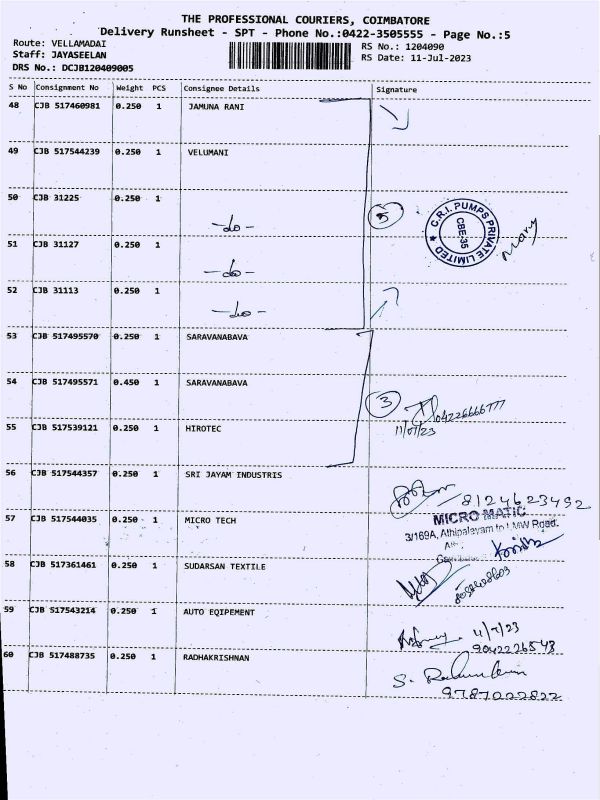 THE PROFESSIONAL COURIERS, COIMBATORE
Delivery Runsheet - SPT - Phone No.:0422-3505555 - Page No.:5
Route: VELLAMADAI
RS No.: 1204090
Staff: JAYASEELAN
RS Date: 11-Jul-2023
DRS No.: DCJB120409005
S No Consignment No Weight PCS Consignee Details Signature
48 CJB 517460981 0.250 1 JAMUNA RANI
49 CJB 517544239 0.250 1 VELUMANI
50 CJB 31225 0.250 1 -do-
5
C.R.I. PUMPS PRIVATE LIMITED
CBE-35
Mary
51 CJB 31127 0.250 1 -do-
52 CJB 31113 0.250 1 -do-
53 CJB 517495570 0.250 1 SARAVANABAVA
54 CJB 517495571 0.450 1 SARAVANABAVA
3
04226666777
11/07/23
55 CJB 517539121 0.250 1 HIROTEC
56 CJB 517544357 0.250 1 SRI JAYAM INDUSTRIS
8124623492
57 CJB 517544035 0.250 1 MICRO TECH
MICRO MATIC
3/169A, Athipalayam to LMW Road.
58 CJB 517361461 0.250 1 SUDARSAN TEXTILE
59 CJB 517543214 0.250 1 AUTO EQIPEMENT
11/7/23
9042226548
60 CJB 517488735 0.250 1 RADHAKRISHNAN
9787022822